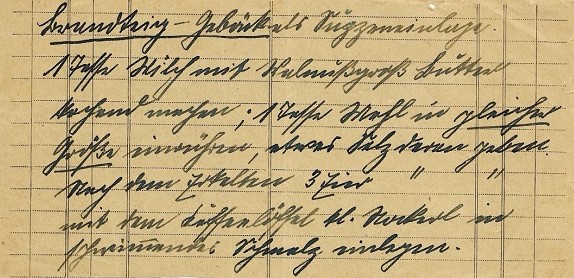 Brandteig-Gebäck als Suppeneinlage.
1 Tasse Milch mit Walnußgroß Butter
kochend machen; 1 Tasse Mehl in gleicher
Größe einrühren, etwas Salz daran geben.
Nach dem Erkalten 3 Eier " "
mit dem Kaffeelöffel kl. Nockerl in
schwimmendes Schmalz einlegen.